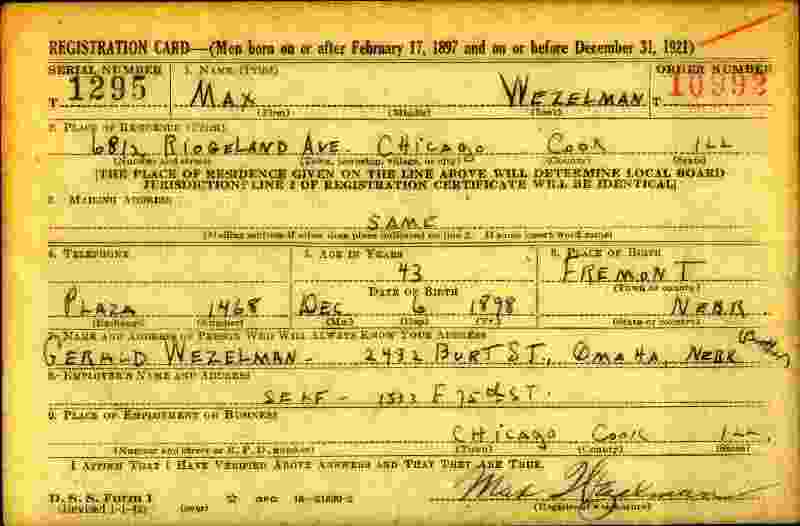 REGISTRATION CARD—(Men born on or after February 17, 1897 and on or before December 31, 1921)
SERIAL NUMBER 1. NAME (Print) ORDER NUMBER
T 1295 MAX WEZELMAN T 10992
(First) (Middle) (Last)
2. PLACE OF RESIDENCE (Print)
6812 RIDGELAND AVE. CHICAGO COOK ILL
(Number and street) (Town, township, village, or city) (County) (State)
[THE PLACE OF RESIDENCE GIVEN ON THE LINE ABOVE WILL DETERMINE LOCAL BOARD
JURISDICTION; LINE 2 OF REGISTRATION CERTIFICATE WILL BE IDENTICAL]
3. MAILING ADDRESS
SAME
(Mailing address if other than place indicated on line 2. If same insert word same)
4. TELEPHONE 5. AGE IN YEARS 6. PLACE OF BIRTH
43 FREMONT
DATE OF BIRTH (Town or county)
PLAZA 1468 DEC 6 1898 NEBR
(Exchange) (Number) (Mo.) (Day) (Yr.) (State or country)
7. NAME AND ADDRESS OF PERSON WHO WILL ALWAYS KNOW YOUR ADDRESS
GERALD WEZELMAN - 2432 BURT ST., OMAHA, NEBR (Brother)
8. EMPLOYER'S NAME AND ADDRESS
SELF - E 75th ST.
9. PLACE OF EMPLOYMENT OR BUSINESS
CHICAGO COOK ILL.
(Number and street or R. F. D. number) (Town) (County) (State)
I AFFIRM THAT I HAVE VERIFIED ABOVE ANSWERS AND THAT THEY ARE TRUE.
D. S. S. Form 1
(Revised 1-1-42) (over) GPO 16-21630-2 Max Wezelman
(Registrant's signature)